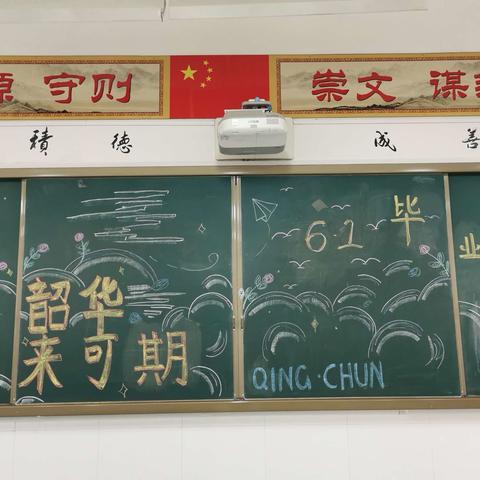 源 守则
崇文 谋
積 德 成 善
韶华
来可期
61 毕
业
QING·CHUN